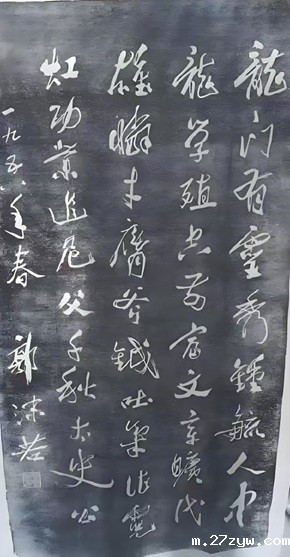 龍门有靈秀鍾毓人中
龍学殖空前富文章曠代
雄憐才膺斧鉞吐氣作霓
虹功業追尼父千秋太史公
一九五八年春 郭沫若
m.27zyw.com